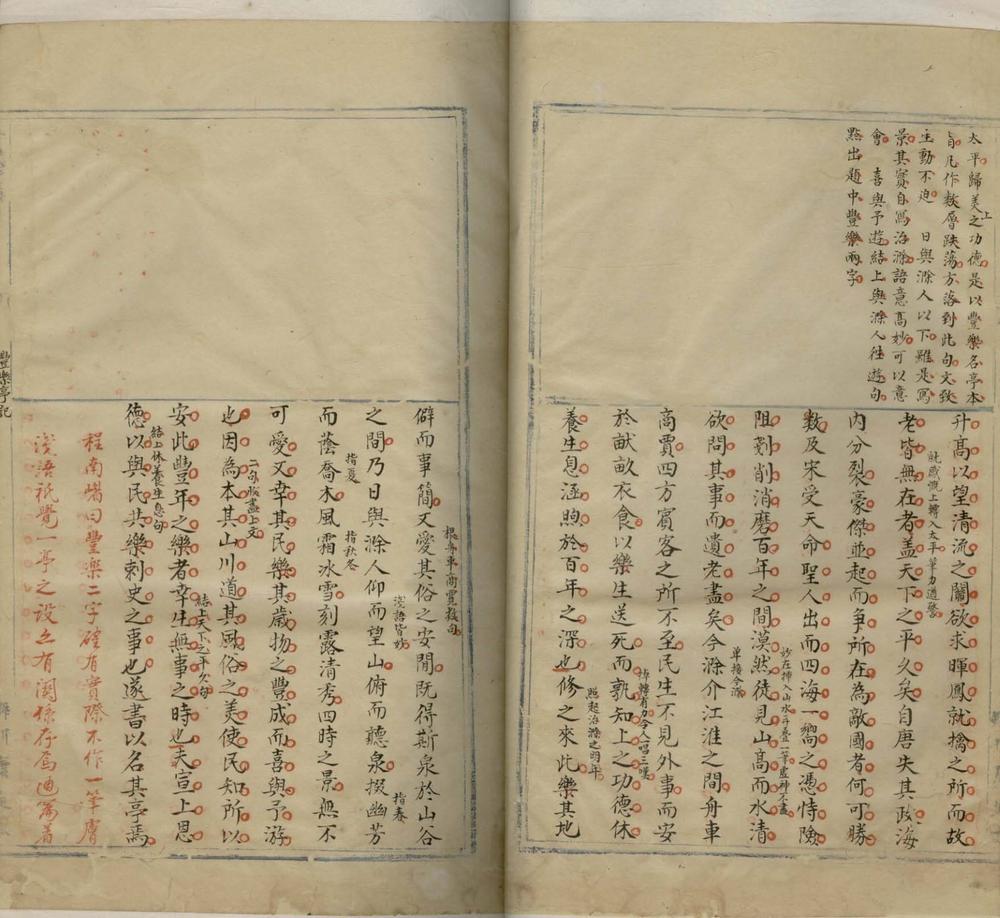 太平歸美上之功德是以豐樂名亭本
旨凡作數層跌蕩方落到此句文致
生動不迫　日與滁人以下雖是寫
景其實自寫治滁語意高妙可以意
會　喜與予遊結上與滁人往遊句
點出題中豐樂兩字
升高以望清流之關欲求暉鳳就擒之所而故
老皆無在者蓋天下之平久矣自唐失其政海
既感慨上轉入太平筆力遒緊
內分裂豪傑並起而爭所在為敵國者何可勝
數及宋受天命聖人出而四海一嚮之憑恃險
阻剗削消磨百年之間漠然徒見山高而水清
妙在插入山水
欲問其事而遺老盡矣今滁介江淮之間舟車
單接今滁
商賈四方賓客之所不至民生不見外事而安
於畎畝衣食以樂生送死而孰知上之功德休
掉轉有力令人唱三嘆
養生息涵煦於百年之深也修之來此樂其地
照起治滁之明年
僻而事簡又愛其俗之安閒既得斯泉於山谷
根舟車商賈數句
之間乃日與滁人仰而望山俯而聽泉掇幽芳
淺語皆妙
指春
而蔭喬木風霜冰雪刻露清秀四時之景無不
指夏
指秋冬
可愛又幸其民樂其歲物之豐成而喜與予游
也因為本其山川道其風俗之美使民知所以
二句收盡上文
安此豐年之樂者幸生無事之時也夫宣上恩
結上天下之平久句
德以與民共樂刺史之事也遂書以名其亭焉
結上休養生息句
程南曰豐樂二字確有實際不作一筆膚
淺語祇覺一亭之設亦有關係存焉
豐樂亭記